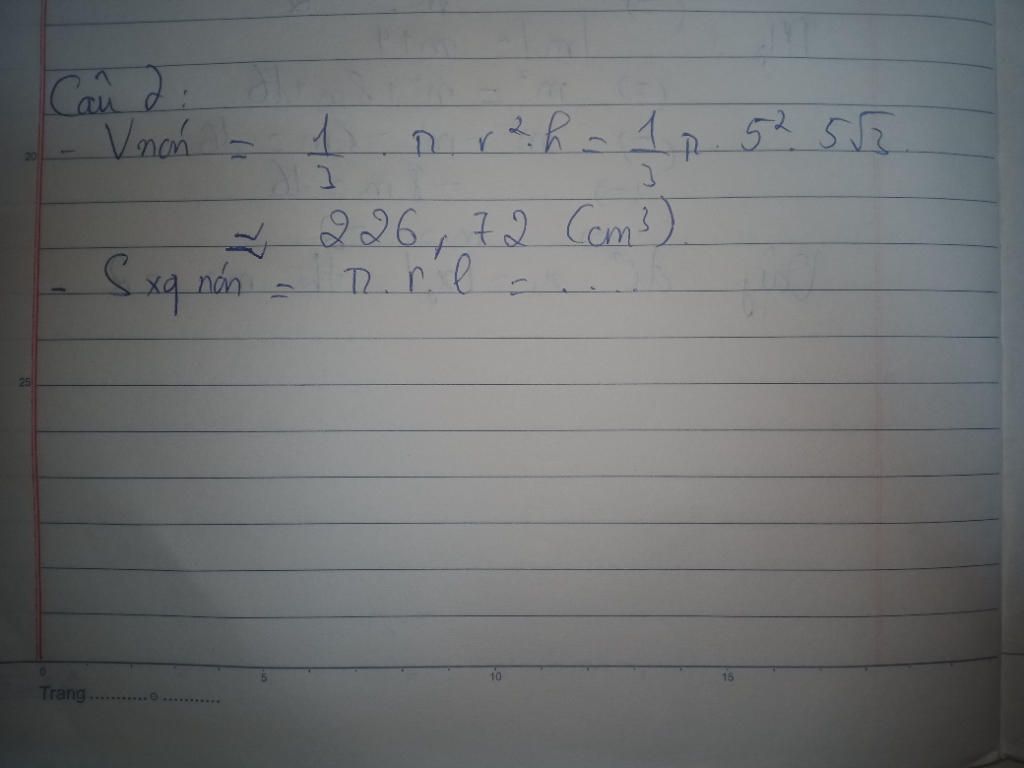 Câu 2:
- Vnón = 1/3 . π. r². h = 1/3 π. 5². 5√3.
≈ 226,72 (cm³).
- Sxq nón = π. r. l = ....
20
25
0 5 10 15
Trang..........o..........